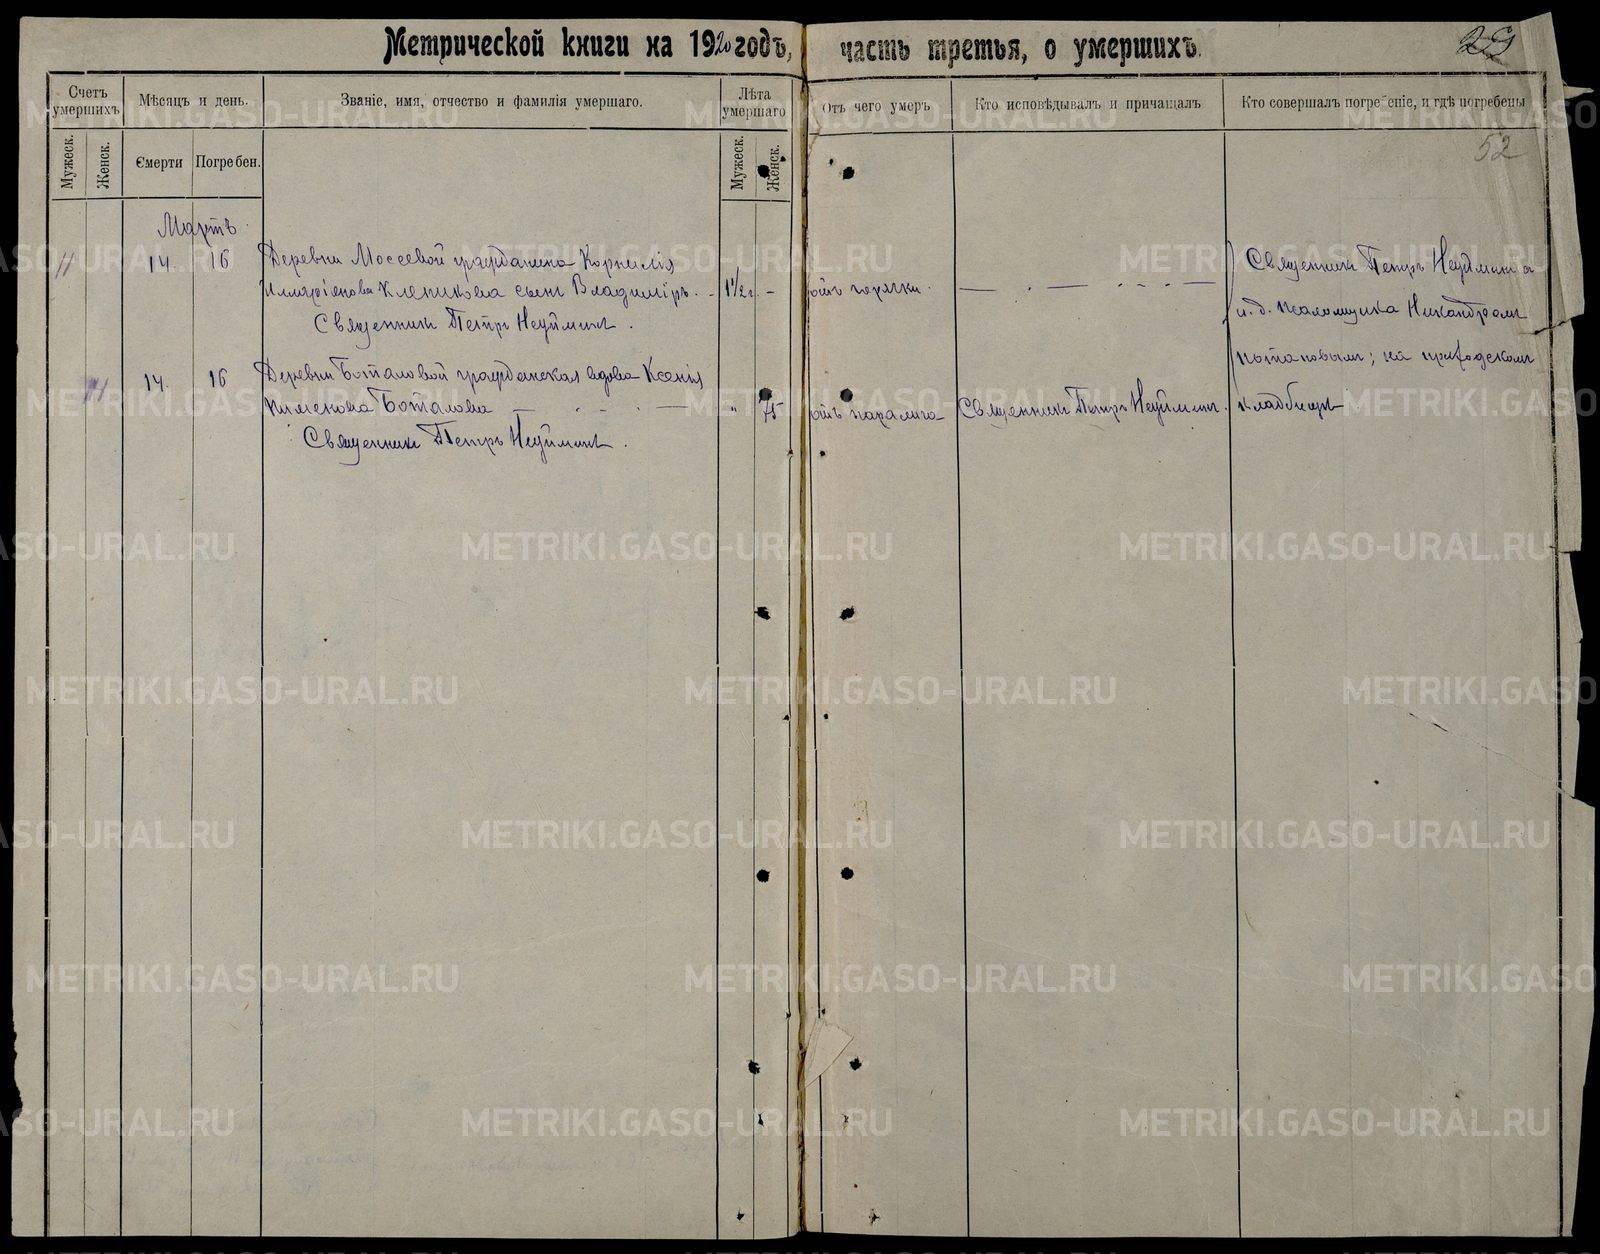 Метрической книги на 1920 годъ, часть третья, о умершихъ.
29
52
Счетъ умершихъ
Мѣсяцъ и день.
Званіе, имя, отчество и фамилія умершаго.
Лѣта умершаго
Отъ чего умеръ
Кто исповѣдывалъ и причащалъ
Кто совершалъ погребеніе, и гдѣ погребены
Мужеск.
Женск.
Смерти
Погребен.
Мужеск.
Женск.
Мартъ
11
14
16
Деревни Мосеевой гражданина Корнилія
Илларіонова Клепикова сынъ Владиміръ.
Священникъ Петръ Неуйминъ.
1 1/2 г.
отъ горячки
Священникъ Петръ Неуйминъ
и.д. псаломщика Никандромъ
Потаповымъ; на приходскомъ
кладбищѣ
11
14
16
Деревни Боталовой гражданская вдова Ксенія
Боталова
Священникъ Петръ Неуйминъ.
"
75
отъ паралича
Священникъ Петръ Неуйминъ.
METRIKI.GASO-URAL.RU